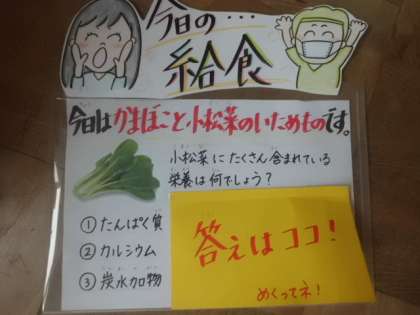 今日の…
給食
今日はかまぼこと小松菜のいためものです。
小松菜にたくさん含まれている
栄養は何でしょう？
①たんぱく質
②カルシウム
③炭水化物
答えはココ！
めくってネ！